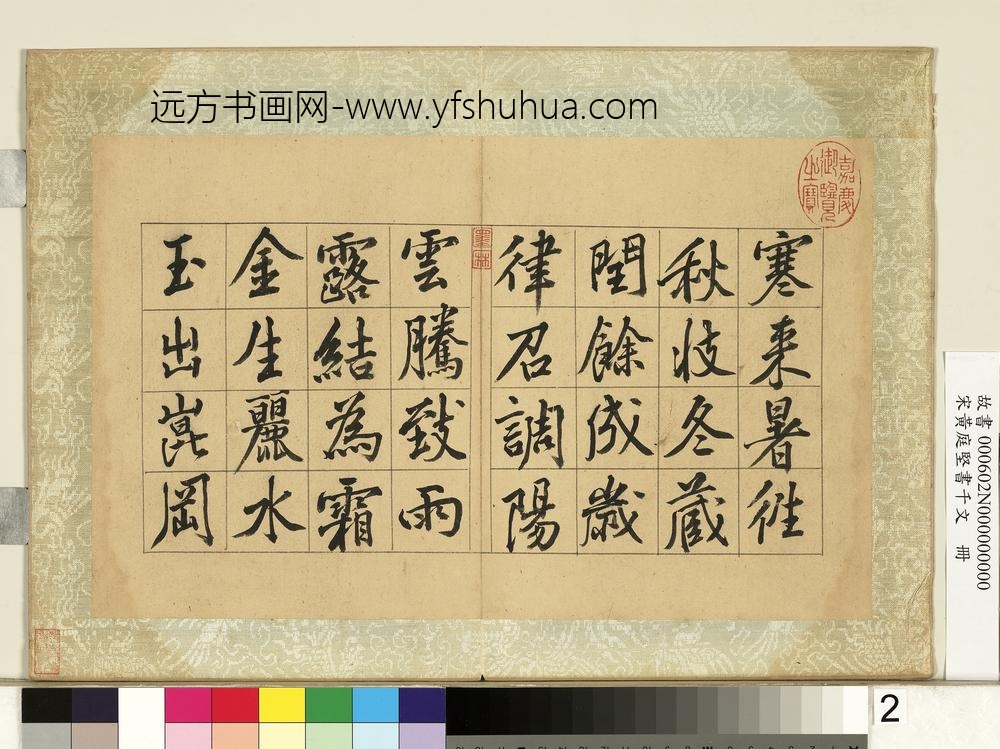 远方书画网-www.yfshuhua.com
嘉慶御覽之寶
寒来暑往
秋收冬蔵
閏餘成歲
律召調陽
雲騰致雨
露結為霜
金生麗水
玉出崑岡
故書 000602N000000000
宋黄庭堅書千文 冊
2